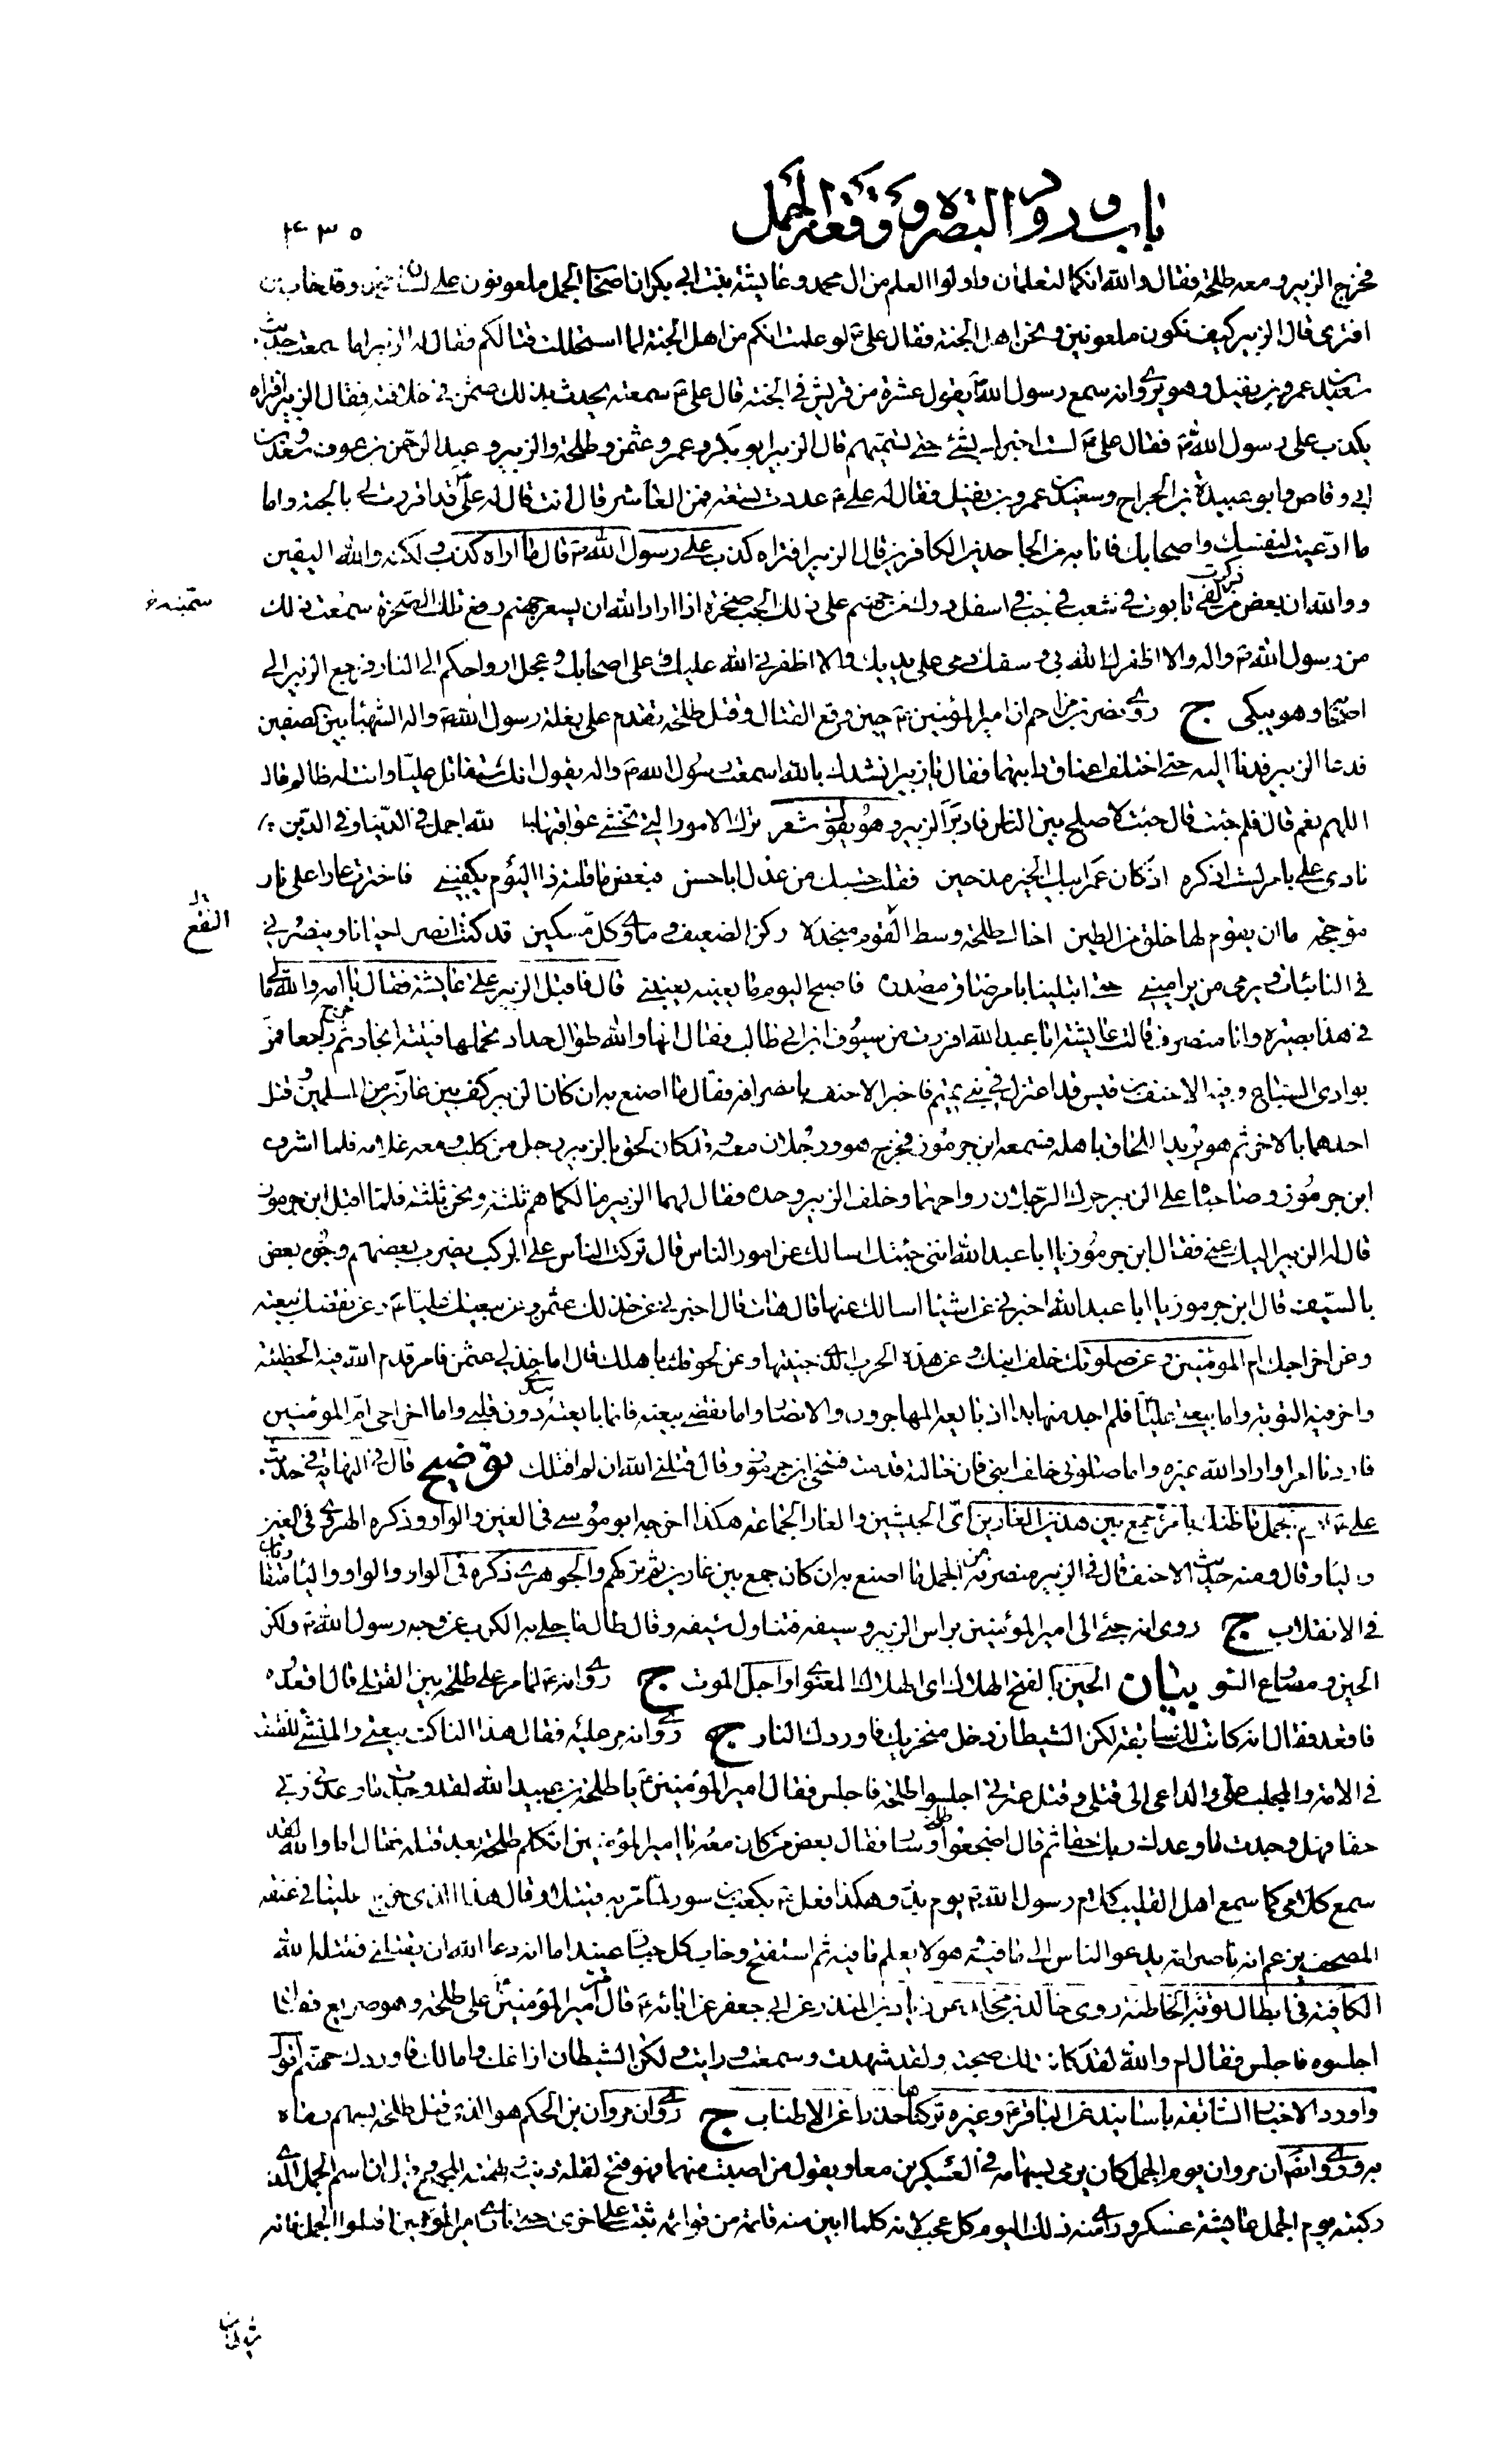 باب ورود البصرة ووقعة الجمل
٤٣٥
فخرج الزبير ومعه طلحة فقال والله انكما لتعلمان واولوا العلم من ال محمد وعايشة بنت ابي بكر ان اصحاب الجمل ملعونون على لسان محمد وقد خاب من
افترى قال الزبير كيف نكون ملعونين ونحن اهل الجنة فقال علي ع لو علمت انكم من اهل الجنة لما استحللت قتالكم فقال له الزبير اما سمعت حديث
سعيد بن عمرو بن نفيل وهو يروي انه سمع رسول الله ص يقول عشرة من قريش في الجنة قال علي ع سمعته يحدث بذلك عثمن في خلافته فقال الزبير افتراه
يكذب على رسول الله ص فقال علي ع لست اخبرك بشئ حتى تسميهم قال الزبير ابو بكر وعمر وعثمن وطلحة والزبير وعبد الرحمن بن عوف وسعد بن
ابي وقاص وابو عبيدة بن الجراح وسعيد بن عمرو بن نفيل فقال له علي ع عددت تسعة فمن العاشر قال انت قال له علي قد اقررت لي بالجنة واما
ما ادعيت لنفسك واصحابك فانا به من الجاحدين الكافرين قال الزبير افتراه كذب على رسول الله ص قال ما اراه كذب ولكنه والله اليقين
ووالله ان بعض من ذكرت لفي تابوت في شعب في جب في اسفل درك من جهنم على ذلك الجب صخرة اذا اراد الله ان يسعر جهنم رفع تلك الصخرة سمعت ذلك
من رسول الله ص واله والا اظفرك الله بي وسفك دمي على يديك والا اظفرني الله عليك وعلى اصحابك وعجل ارواحكم الى النار فرجع الزبير الى
اصحابه وهو يبكي ج روى نصر بن مزاحم ان امير المؤمنين ع حين وقع القتال وقتل طلحة تقدم على بغلة رسول الله ص واله الشهبا بين الصفين
فدعا الزبير فدنا اليه حتى اختلف اعناق دابتيهما فقال يا زبير انشدك بالله اسمعت رسول الله ص واله يقول انك ستقاتل عليا وانت له ظالم قال
اللهم نعم قال فلم جئت قال جئت لاصلح بين الناس فادبر الزبير وهو يقول شعر ترك الامور التي تخشى عواقبها لله اجمل في الدنيا وفي الدين
نادى علي بامر لست اذكره اذ كان عمر ابيك الخير مذ حين فقلت حسبك من عذل ابا حسن فبعض ما قلت ذا اليوم يكفيني فاخترت عارا على نار
مؤججة ما ان يقوم لها خلق من الطين اخال طلحة وسط القوم منجدلا ركن الضعيف وماوى كل مسكين قد كنت انصر احيانا وينصرني
في النائبات ويرمي من يراميني حتى ابتلينا بامر ضاق مصدره فاصبح اليوم ما يعنيه يعنيني قال فاقبل الزبير على عايشة فقال يا امه والله ما لي
في هذا بصيرة وانا منصرف قالت عايشة ابا عبد الله افررت من سيوف ابن ابي طالب فقال انها والله طوال حداد تحملها فتية انجاد ثم خرج راجعا فمر
بوادي السباع وفيه الاحنف بن قيس قد اعتزل في بني تميم فاخبر الاحنف بانصرافه فقال ما اصنع به ان كان الزبير كف بين غارين من المسلمين وقتل
احدهما بالاخر ثم هو يريد اللحاق باهله فسمعه ابن جرموز فخرج هو ورجلان معه وقد كان لحق بالزبير رجل من كلب ومعه غلامه فلما اشرف
ابن جرموز وصاحباه على الزبير حرك الرجلان رواحلهما وخلف الزبير وحده فقال لهما الزبير ما لكما هم ثلثة ونحن ثلثة فلما اقبل ابن جرموز
قال له الزبير اليك عني فقال ابن جرموز يا ابا عبد الله انني جئتك اسالك عن امور الناس قال تركت الناس على الركب يضرب بعضهم وجوه بعض
بالسيف قال ابن جرموز يا ابا عبد الله اخبرني عن اشيا اسالك عنها قال هات قال اخبرني عن خذلك عثمن وعن بيعتك عليا ع وعن نقضك بيعته
وعن اخراجك ام المؤمنين وعن صلوتك خلف ابنك وعن هذه الحرب التي جنيتها وعن لحوقك باهلك قال اما خذلي عثمن فامر قدم الله فيه الخطيئة
واخر فيه التوبة واما بيعتي عليا فلم اجد منها بدا اذ بايعه المهاجرون والانصار واما نقضي بيعته فانما بايعته بيدي دون قلبي واما اخراجي ام المؤمنين
فاردنا امرا واراد الله غيره واما صلوتي خلف ابني فان خالته قدمته فتنحى ابن جرموز وقال قتلني الله ان لم اقتلك توضيح قال في النهاية في حديث
علي ع يوم الجمل ما ظنك بامرء جمع بين هذين الغارين اي الجيشين والغار الجماعة هكذا اخرجه ابو موسى في الغين والواو وذكره الهروي في الغين
والياء وقال ومنه حديث الاحنف قال في الزبير منصرفه من الجمل ما اصنع به ان كان جمع بين غارين ثم تركهم والجوهري ذكره في الواو والواو والياء متقاربان
في الانقلاب ج روي انه جئ الى امير المؤمنين براس الزبير وسيفه فتناول سيفه وقال طال ما جلى به الكرب عن وجه رسول الله ص ولكن
الحين ومصارع السو بيان الحين بالفتح الهلاك اي الهلاك المعنوي او اجل الموت ج روي انه ع لما مر على طلحة بين القتلى قال اقعدوه
فاقعد فقال انه كانت لك سابقة لكن الشيطان دخل منخريك فاوردك النار ج روي انه مر عليه فقال هذا الناكث بيعتي والمنشئ للفتنة
في الامة والمجلب علي والداعي الى قتلي وقتل عترتي اجلسوا طلحة فاجلس فقال امير المؤمنين ع يا طلحة بن عبيد الله لقد وجدت ما وعدني ربي
حقا فهل وجدت ما وعدك ربك حقا ثم قال اضجعوا طلحة وسار فقال بعض من كان معه يا امير المؤمنين اتكلم طلحة بعد قتله فقال اما والله لقد
سمع كلامي كما سمع اهل القليب كلام رسول الله ص يوم بدر وهكذا فعل ع بكعب بن سور لما مر به قتيلا وقال هذا الذي خرج علينا في عنقه
المصحف يزعم انه ناصر امه يدعو الناس الى ما فيه وهو لا يعلم ما فيه ثم استفتح وخاب كل جبار عنيد اما انه دعا الله ان يقتلني فقتله الله
الكافية في ابطال توبة الخاطئة روى خالد بن مخلد عن زياد بن المنذر عن ابي جعفر عن ابائه ع قال مر امير المؤمنين على طلحة وهو صريع فقال
اجلسوه فاجلس فقال ام والله لقد كانت لك صحبة ولقد شهدت وسمعت ورايت ولكن الشيطان ازاغك وامالك فاوردك جهنم اقول
واورد الاخبار السابقة باسانيد عن الباقر ع وغيره تركناها حذرا عن الاطناب ج روي ان مروان بن الحكم هو الذي قتل طلحة بسهم رماه
به وروي ايضا ان مروان يوم الجمل كان يرمي بسهامه في العسكرين معا ويقول من اصبت منهما فهو فتح لقلة دينه وتهمته للجميع وقيل ان اسم الجمل الذي
ركبته يوم الجمل عايشة عسكر وراي منه ذلك اليوم كل عجب لانه كلما ابين منه قائمة من قوائمه ثبت على اخرى حتى نادى امير المؤمنين اقتلوا الجمل فانه
النقع